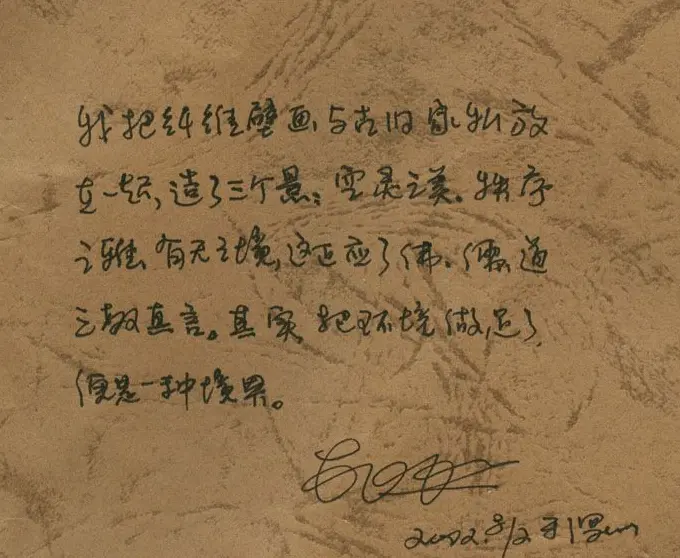 我把纤维壁画与古旧家私放
在一起,造了三个景:空灵之美、秩序
之雅、有无之境,这正应了佛、儒、道
三教真言。其实把环境做足了,
便是一种境界。
2002.8/2